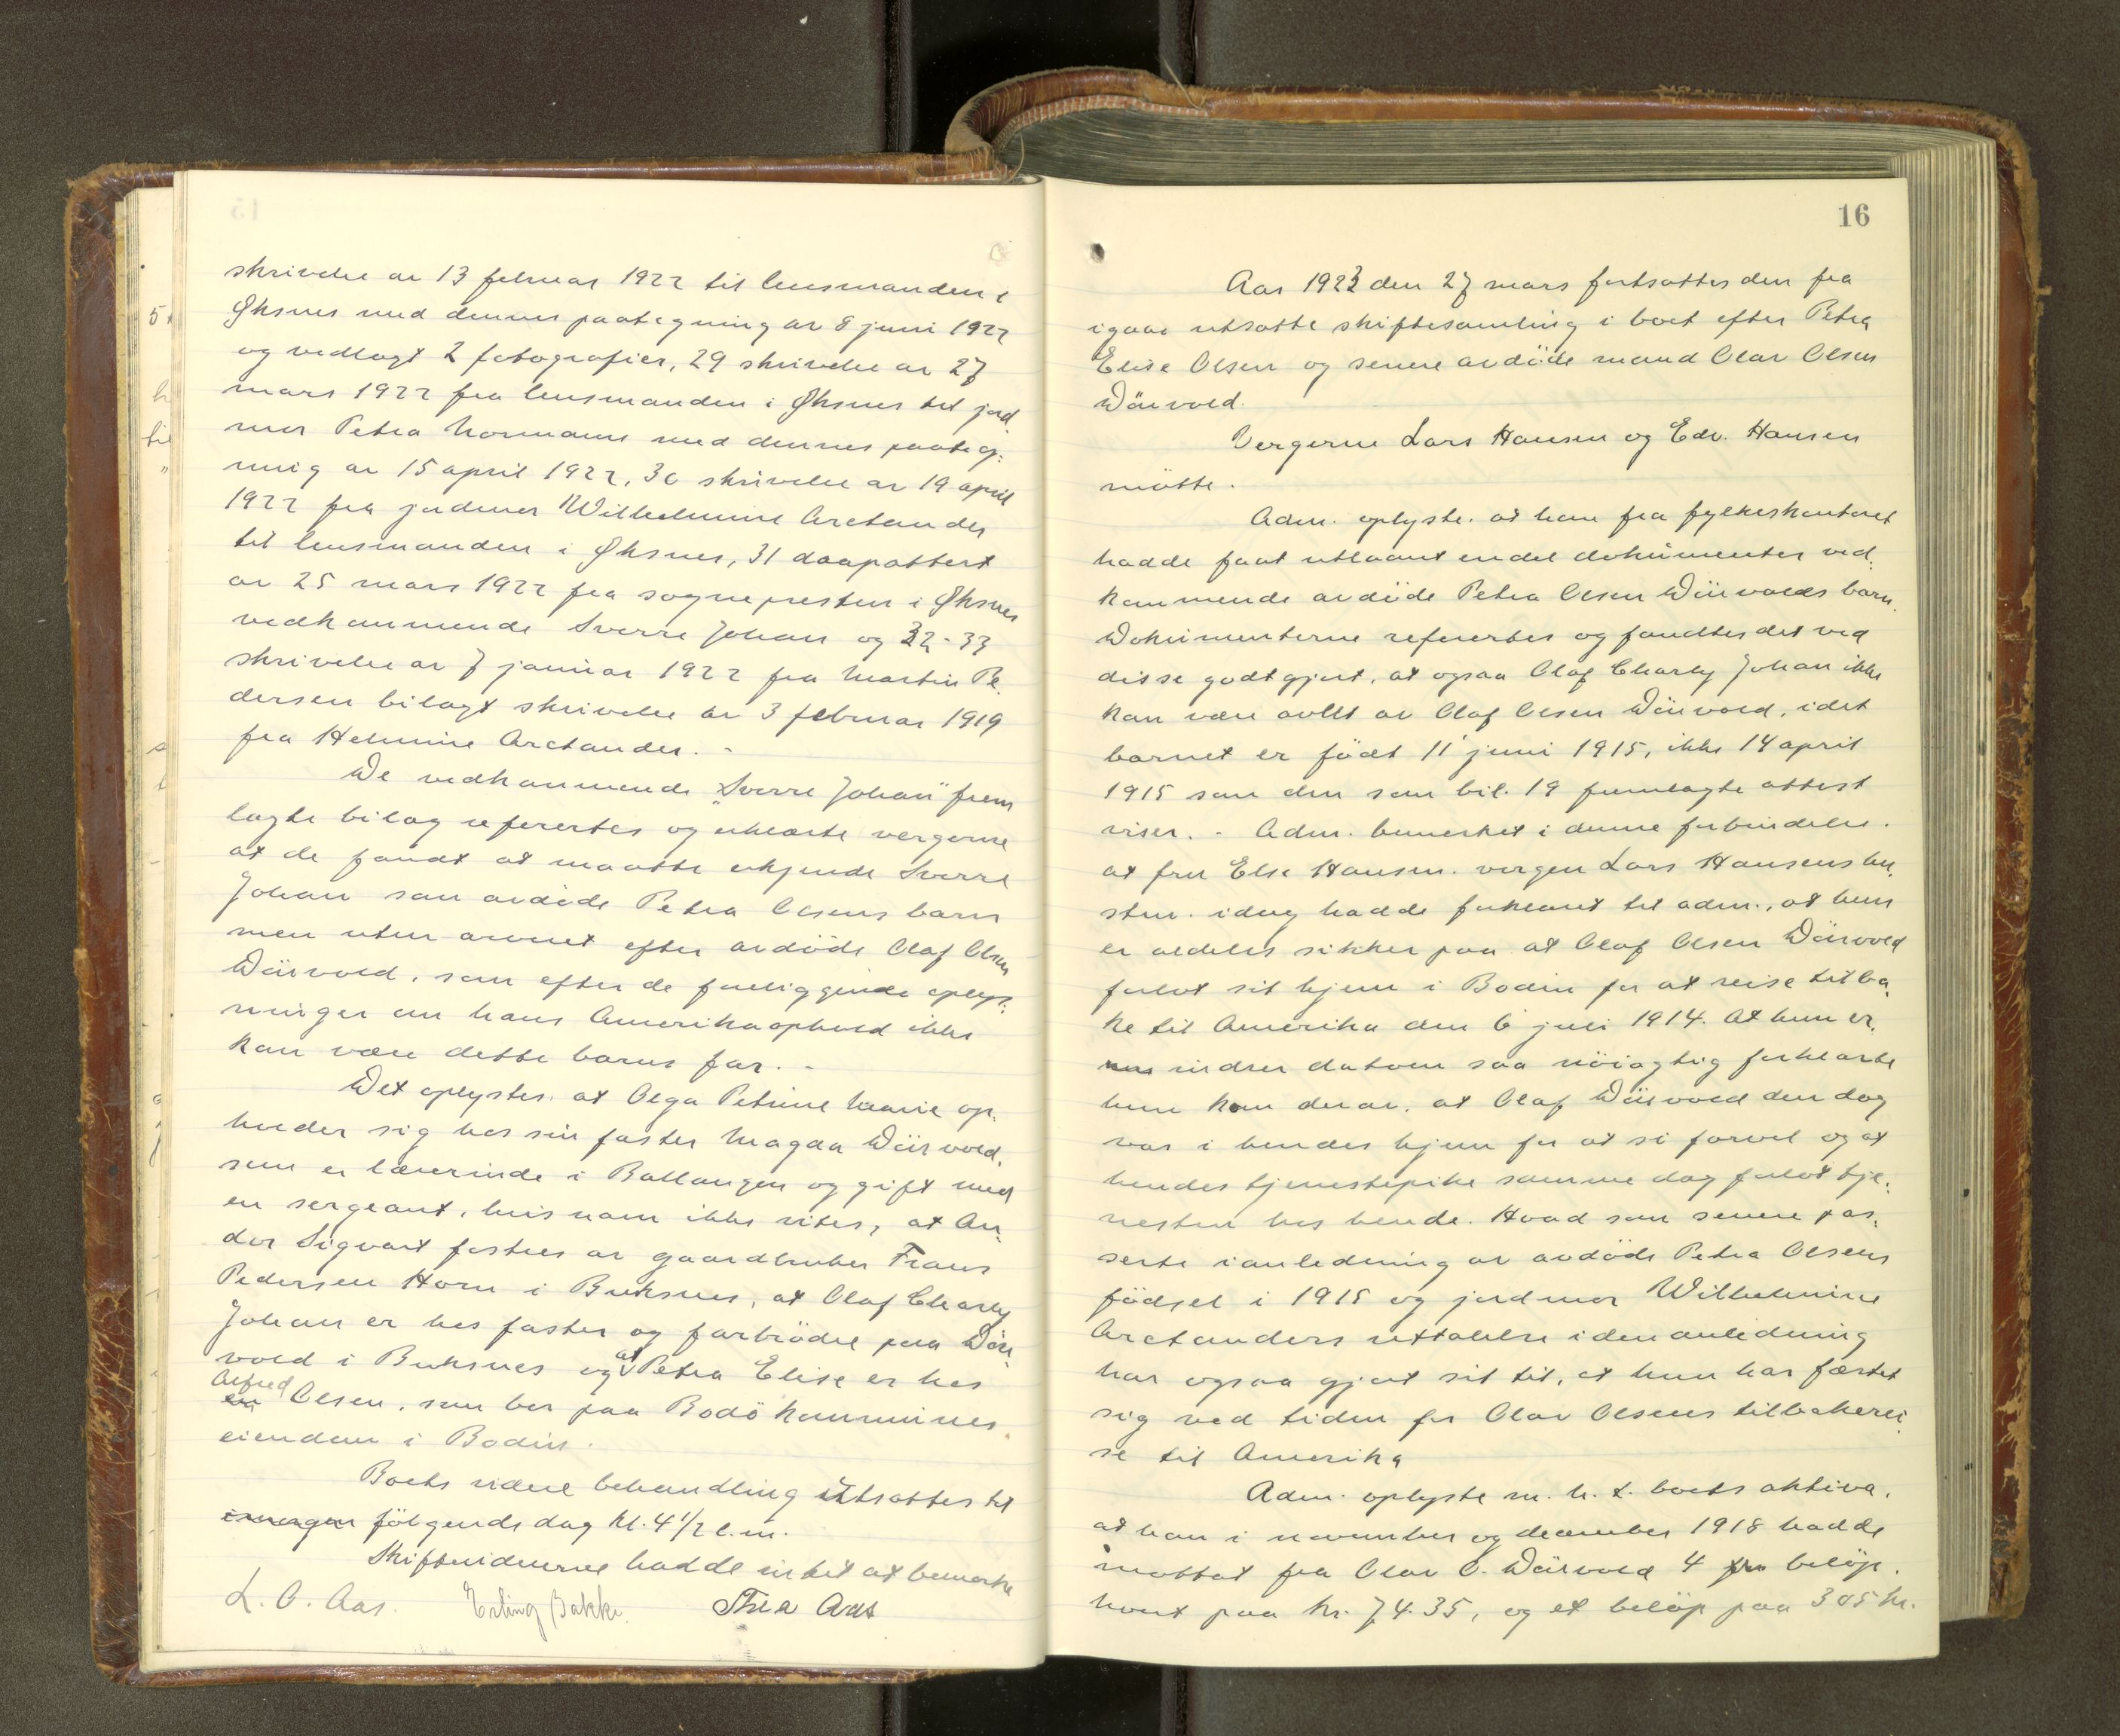 skrivelse av 13 februar 1922 til lensmanden i
Øksnes med dennes paategning av 8 juni 1922
og vedlagt 2 fotografier, 29 skrivelse av 27
mars 1922 fra lensmanden i Øksnes til jord
mor Petra Normann med dennes paateg:
ning av 15 april 1922, 30 skrivelse av 19 april
1922 fra jordmor Wilhelmine Arctander
til lensmanden i Øksnes, 31 daapattest
av 25 mars 1922 fra sognepresten i Øksnes
vedkommende Sverre Johan og 32-33
skrivelse av 7 januar 1922 fra Martin Pe:
dersen bilagt skrivelse av 3 februar 1919
fra Helmine Arctander. -
De vedkommende "Sverre Johan" frem
lagte bilag refertes og erklærte vergerne
at de fandt at maatte erkjende Sverre
Johan som avdøde Petra Olsens barn
men uten arveret efter avdøde Olaf Olsen
Dürvold, som efter de foreliggende oplys:
ninger om hans Amerikaophold ikke
kan være dette barns far. -
Det oplystes at Olga Petrine Marie op:
holder sig hos sin faster Magda Dürvold,
som er lærerinde i Ballangen og gift med
en sergeant, hvis navn ikke vites, at An:
dor Sigvart fostres av gaardbruker Frans
Pedersen Horn i Buksnes, at Olaf Charly
Johan er hos faster og farbrødre paa Dür:
vold i Buksnes og at Petra Elise er hos
Alfred Olsen, som bor paa Bodö kommunes
eiendom i Bodin.
Boets videre behandling utsattes til
imorgen følgende dag kl. 4 1/2 e.m.
Skiftevidnerne hadde intet at bemerke
L. O. Aas. Erling Bakke. Thea Aas
16
Aar 1923 den 27 mars fortsattes den fra
igaar utsatte skiftesamling i boet efter Petra
Elise Olsen og senere avdöde mand Olav Olsen
Dürvold.
Vergerne Lars Hansen og Edv. Hansen
mötte.
Adm. oplyste at han fra fylkeskontoret
hadde faat utlaant endel dokumenter ved:
kommende avdöde Petra Olsen Dürvolds barn.
Dokumenterne refererter og fandtes det ved
disse godtgjort, at ogsaa Olaf Charly Johan ikke
kan være avlet av Olaf Olsen Dürvold, idet
barnet er födt 11' juni 1915, ikke 14 april
1915 som den som bil. 19 fremlagte attest
viser. - Adm. bemerket i denne forbindelse
at fru Else Hansen, vergen Lars Hansens hu:
stru, idag hadde forklaret til adm., at hun
er aldeles sikker paa at Olaf Olsen Dürvold
forlot sit hjem i Bodin for at reise tilba:
ke til Amerika den 6' juli 1914. At hun er:
indrer datoen saa nöiagtig forklarte
hun kom derav, at Olaf Dürvold den dag
var i hendes hjem for at si farvel og at
hendes tjenestepike samme dag forlot tje:
nesten hos hende. Hvad som senere pas:
serte i anledning av avdöde Petra Olsens
födsel i 1915 og jordmor Wilhelmine
Arctanders uttalelse i den anledning
har ogsaa gjort sit til, at hun har fæstet
sig ved tiden for Olav Olsens tilbakerei:
se til Amerika
Adm. oplyste m. h. t. boets aktiva,
at han i november og december 1918 hadde
mottat fra Olav O. Dürvold 4 belöp
hvert paa kr. 74.35, og et belöp paa 305 kr.